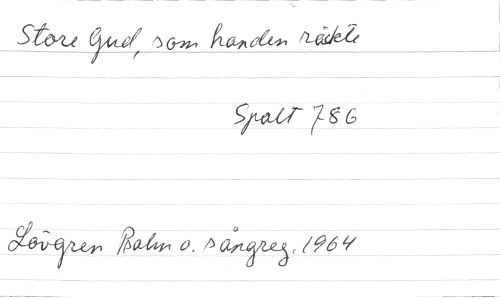 Store Gud, som handen räckte
Spalt 786
Lövgren Psalm o. sångreg. 1964